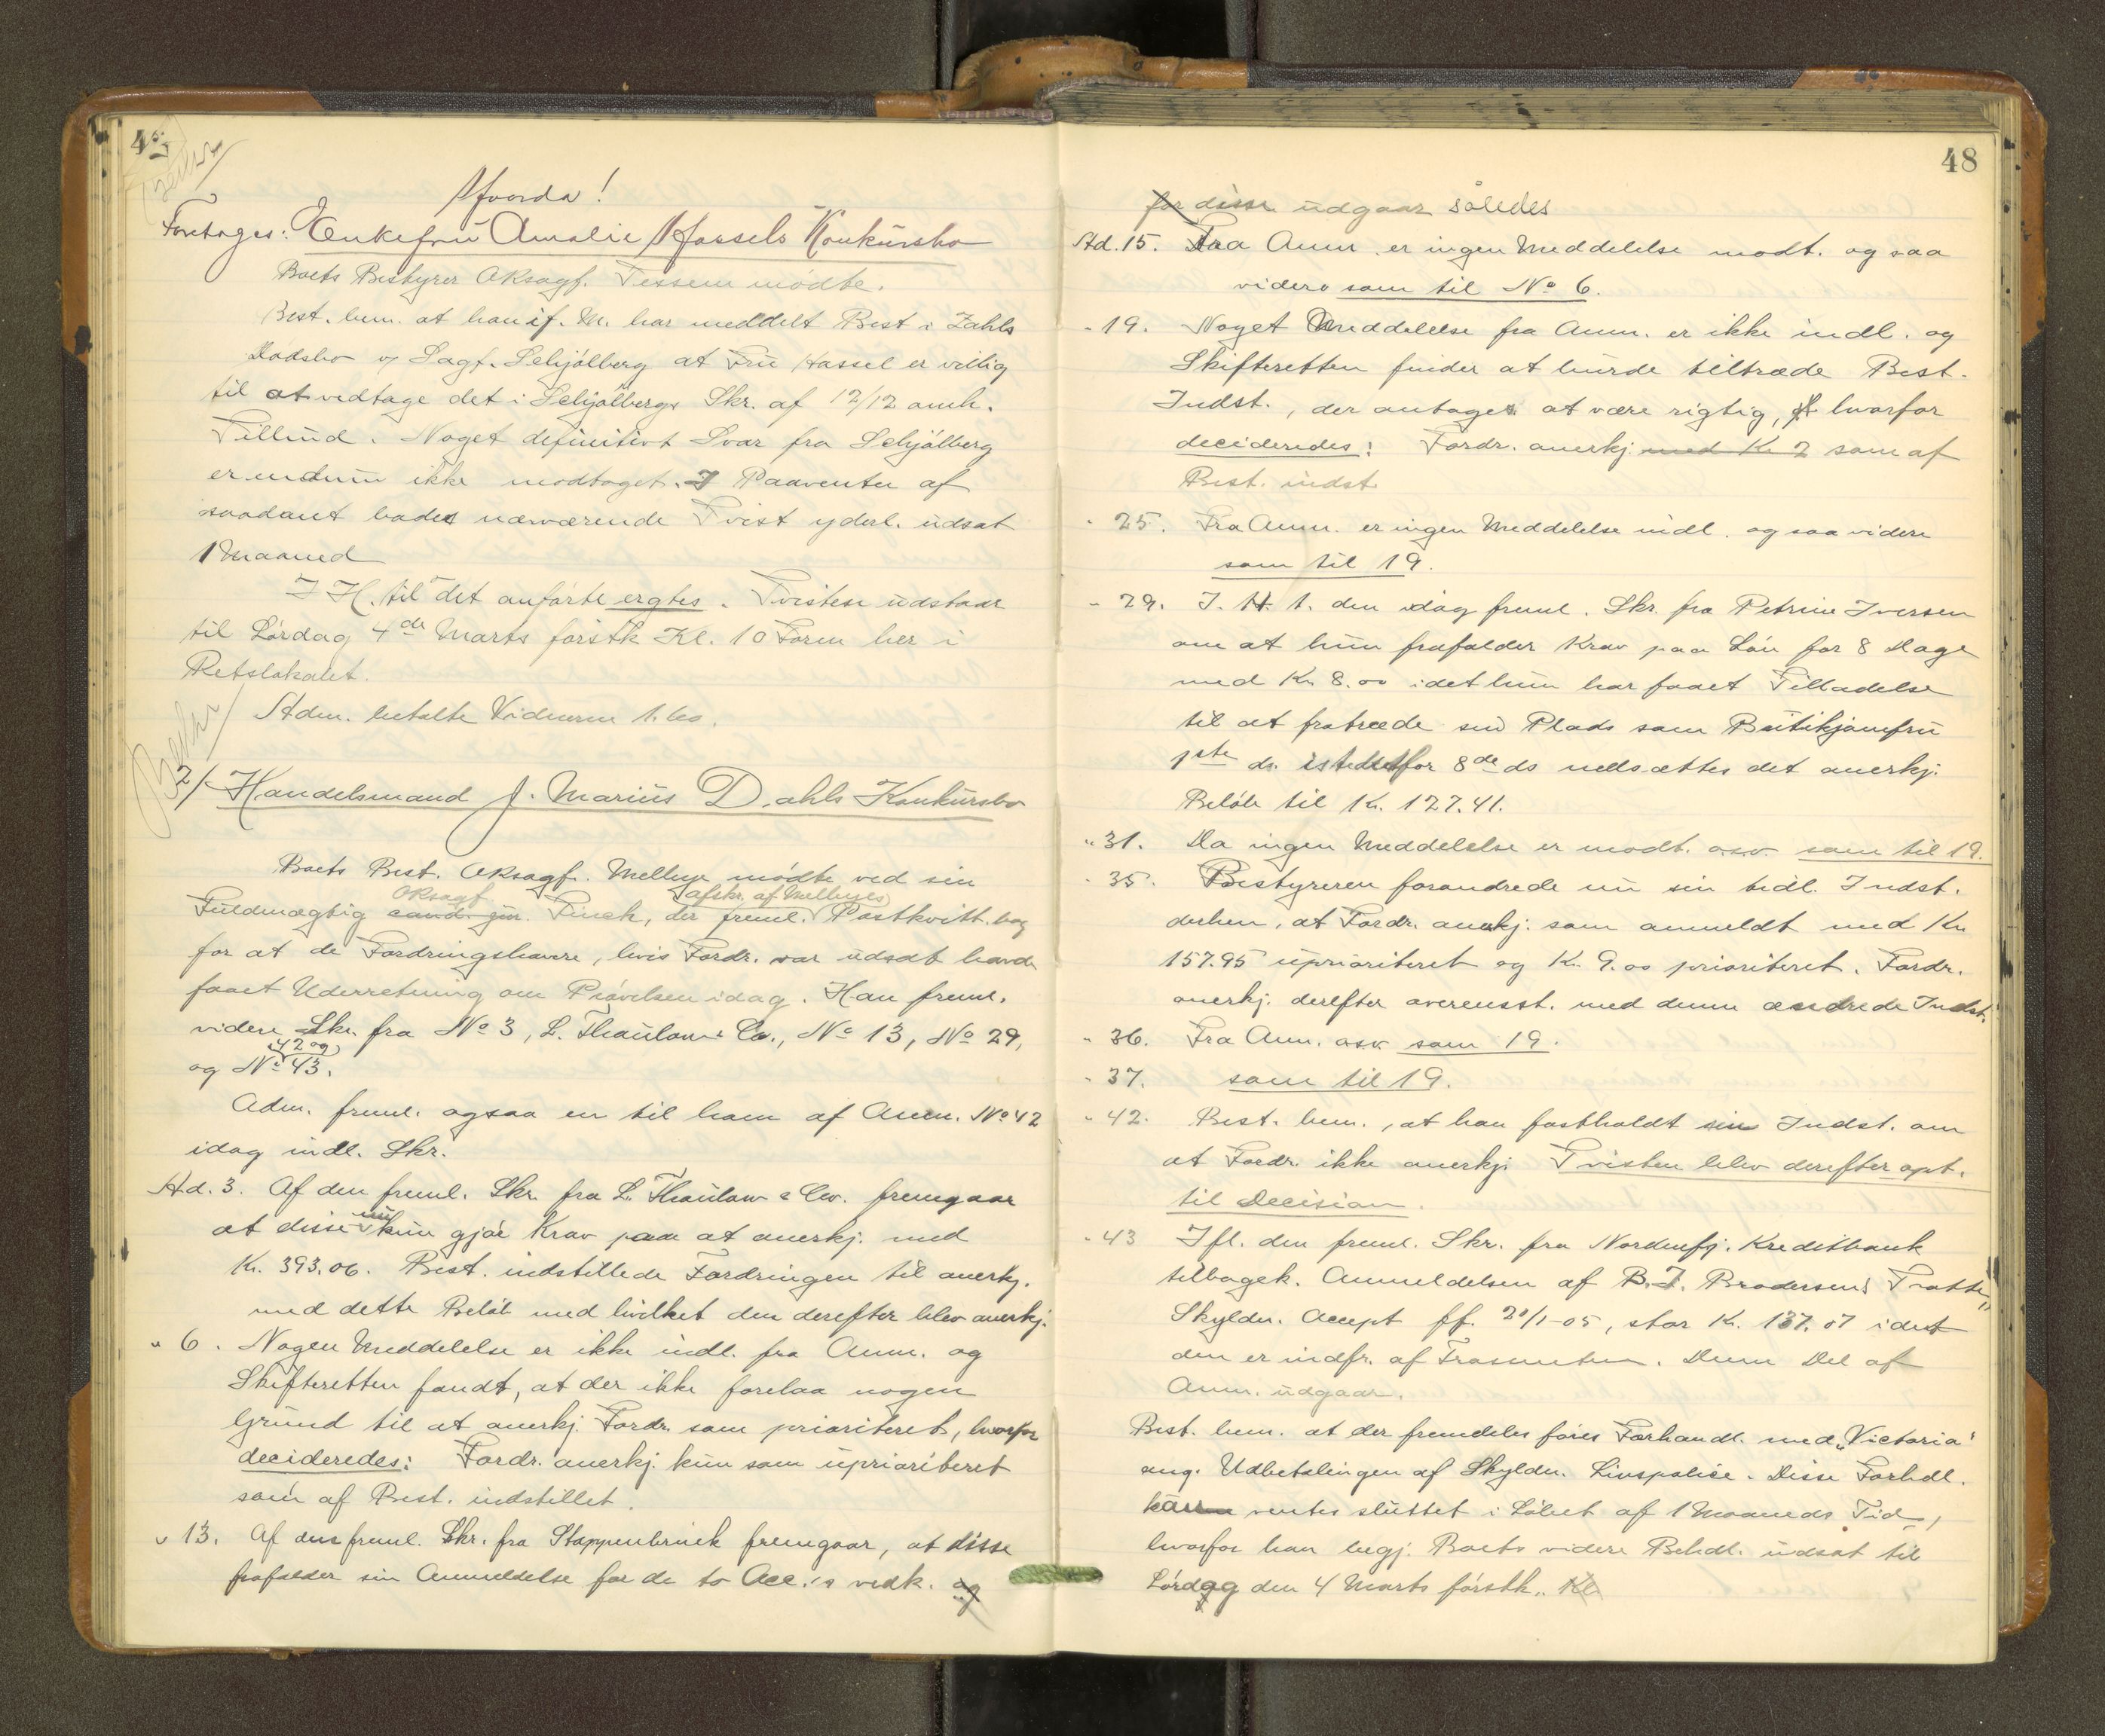 Hvorda!
Foretages: Enkefru Amalie Hassels Konkursbo
Boets Bestyrer OKsagf. Tessem mødte.
Best. bem. at han if. M. har meddelt Best i Zahls
Dødsbo v/ Sagf. Schjølberg at Fru Hassel er villig
til at vedtage det i Schjølbergs Skr. af 12/12 omh.
Tilbud. Noget definitivt Svar fra Schjølberg
er endnu ikke modtaget. I Paavente af
saadant bades nærværende Tvist yderl. udsat
1 Maaned
I H. til det anførte ergtes. Tvisten udstaar
til Lørdag 4de Marts førstk Kl. 10 Form her i
Retslokalet.
Adm. betalte Vidnerne 1.60.
2/ Handelsmand J. Marius Dahls Konkursbo
Boets Best. OKsagf. Mellbye mødte ved sin
OKsagf. afskr. af Mellbyes
Fuldmægtig cand. jur. Finck, der freml. Postkvitt. bog
for at de Fordringshavere, hvis Fordr. var udsat havde
faaet Underretning om Prøvelsen idag. Han freml.
videre Skr. fra No 3, L. Thaulow & Co., No 13, No 29,
42 og
og No 43.
Adm. freml. ogsaa en til ham af Anm. No 42
idag indl. Skr.
Ad. 3. Af den freml. Skr. fra L. Thaulow & Co. fremgaar
nu
at disse kun gjør Krav paa at anerkj. med
Kr. 393.06. Best. indstillede Fordringen til anerkj.
med dette Beløb med hvilket den derefter blev anerkj.
" 6. Nogen Meddelelse er ikke indl. fra Anm. og
Skifteretten fandt, at der ikke forelaa nogen
Grund til at anerkj. Fordr. som prioriteret, hvorfor
decideredes: Fordr. anerkj. kun som uprioriteret
som af Best. indstillet.
" 13. Af den freml. Skr. fra Stappenbruck fremgaar, at disse
frafalder sin Anmeldelse for de to Acc.'s vedk. og
48
for disse udgaar således
Ad. 15. Fra Anm. er ingen Meddelelse modt. og saa
videre som til No 6.
" 19. Noget Meddelelse fra Anm. er ikke indl. og
Skifteretten finder at burde tiltræde Best.
Indst., der antages at være rigtig, hvorfor
decideredes: Fordr. anerkj. med Kr 2 som af
Best. indst.
" 25. Fra Anm. er ingen Meddelelse indl. og saa videre
som til 19.
" 29. I. H. t. den idag freml. Skr. fra Petrine Iversen
om at hun frafalder Krav paa Løn for 8 Dage
med Kr. 8.00 idet hun har faaet Tilladelse
til at fratræde sin Plads som Butikjomfru
1ste ds. istedetfor 8de ds nedsættes det anerkj.
Beløb til Kr. 127.41.
" 31. Da ingen Meddelelse er modt. osv. som til 19.
" 35. Bestyreren forandrede nu sin tidl. Indst.
derhen, at Fordr. anerkj. som anmeldt med Kr.
157.95 uprioriteret og Kr. 9.00 prioriteret. Fordr.
anerkj. derefter overensst. med denne ændrede Indst.
" 36. Fra Anm. osv. som 19.
" 37. som til 19.
" 42. Best. bem., at han fastholdt sin Indst. om
at Fordr. ikke anerkj. Tvisten blev derefter opt.
til Decision.
" 43 Ifl. den freml. Skr. fra Nordenfj. Kreditbank
tilbagek. Anmeldelsen af B. J. Brodersens Tratte,
Skyldn. Accept ff. 20/1-05, stor Kr. 137.07 idet
den er indfr. af Trasenten. Denne Del af
Anm. udgaar.
Best. bem. at der fremdeles føres Forhandl. med „Victoria"
ang. Udbetalingen af Skyldn. Livspolice. Disse Forhdl.
kan ventes sluttet i Løbet af 1 Maaneds Tid,
hvorfor han begj. Boets videre Behdl. udsat til
Lørdag den 4 Marts førstk. Kl